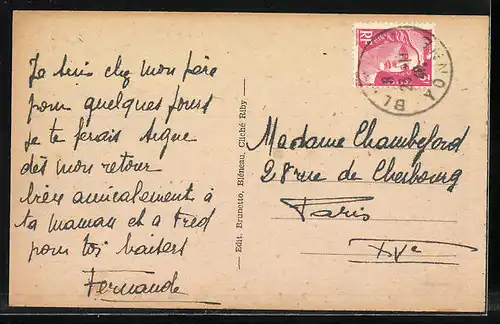 Je suis chez mon père
pour quelques jours
je te ferais signe
dès mon retour
bien amicalement à
ta maman et à Fred
pour toi baisers
Fernande
Edit. Brunetto, Bléneau, Cliché Riby
RF
Madame Chambeford
28 rue de Cherbourg
Paris
XVe